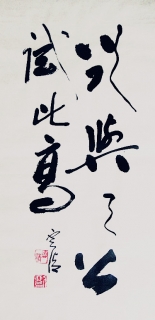 欲與天公
試比高